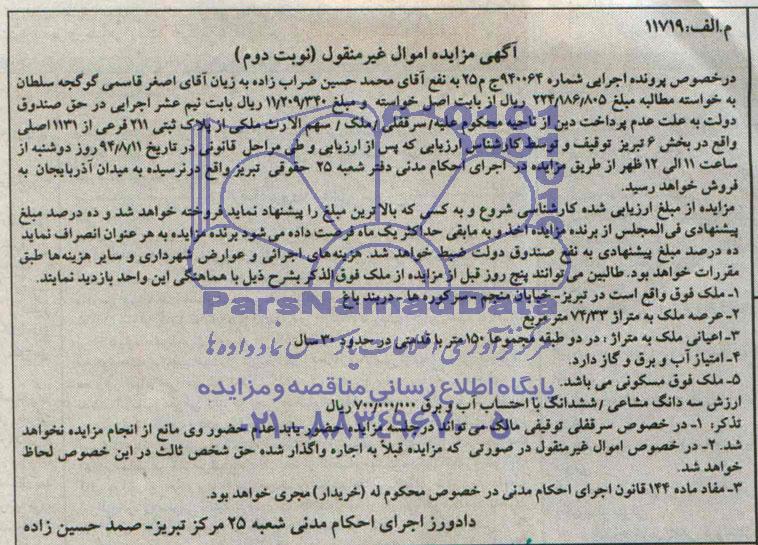 م.الف:۱۱۷۱۹
آگهی مزایده اموال غیرمنقول (نوبت دوم)
درخصوص پرونده اجرایی شماره ۹۴۰۰۶۴ج م۲۵ به نفع آقای محمد حسین ضراب زاده به زیان آقای اصغر قاسمی گوگجه سلطان
به خواسته مطالبه مبلغ ۲۲۴/۱۸۶/۸۰۵ ریال از بابت اصل خواسته و مبلغ ۱۱/۲۰۹/۳۴۰ ریال بابت نیم عشر اجرایی در حق صندوق
دولت به علت عدم پرداخت دین از ناحیه محکوم علیه/سرقفلی /ملک / سهم الارث ملکی از پلاک ثبتی ۲۱۱ فرعی از ۱۱۳۱اصلی
واقع در بخش ۶ تبریز توقیف و توسط کارشناس ارزیابی که پس از ارزیابی و طی مراحل قانونی در تاریخ ۹۴/۸/۱۱ روز دوشنبه از
ساعت ۱۱ الی ۱۲ ظهر از طریق مزایده در اجرای احکام مدنی دفتر شعبه ۲۵ حقوقی تبریز واقع در نرسیده به میدان آذربایجان به
فروش خواهد رسید.
مزایده از مبلغ ارزیابی شده کارشناسی شروع و به کسی که بالاترین مبلغ را پیشنهاد نماید فروخته خواهد شد و ده درصد مبلغ
پیشنهادی فی المجلس از برنده مزایده اخذ و به مابقی حداکثر یک ماه فرصت داده می شود برنده مزایده به هر عنوان انصراف نماید
ده درصد مبلغ پیشنهادی به نفع صندوق دولت ضبط خواهد شد. هزینه های اجرائی و عوارض شهرداری و سایر هزینه ها طبق
مقررات خواهد بود. طالبین می توانند پنج روز قبل از مزایده از ملک فوق الذکر بشرح ذیل با هماهنگی این واحد بازدید نمایند.
۱- ملک فوق واقع است در تبریز- خیابان منجم- سرکوره ها- دربند باغ
۲- عرصه ملک به متراژ ۷۴/۳۳ متر مربع
۳- اعیانی ملک به متراژ : در دو طبقه مجموعا ۱۵۰ متر با قدمتی در حدود ۳۰ سال
۴- امتیاز آب و برق و گاز دارد.
۵- ملک فوق مسکونی می باشد.
ارزش سه دانگ مشاعی /ششدانگ با احتساب آب و برق ۷۰۰/۰۰۰/۰۰۰ ریال
تذکر: ۱- در خصوص سرقفلی توقیفی مالک می تواند در جلسه مزایده حضور یابد عدم حضور وی مانع از انجام مزایده نخواهد
شد. ۲- در خصوص اموال غیرمنقول در صورتی که مزایده قبلاً به اجاره واگذار شده حق شخص ثالث در این خصوص لحاظ
خواهد شد.
۳- مفاد ماده ۱۴۴ قانون اجرای احکام مدنی در خصوص محکوم له (خریدار) مجری خواهد بود.
دادورز اجرای احکام مدنی شعبه ۲۵ مرکز تبریز- صمد حسین زاده
ParsNamadData
مرکز فرآوری اطلاعات پارس نماد داده ها
پایگاه اطلاع رسانی مناقصه و مزایده
۰۲۱-۸۸۳۴۹۶۷۰-۵